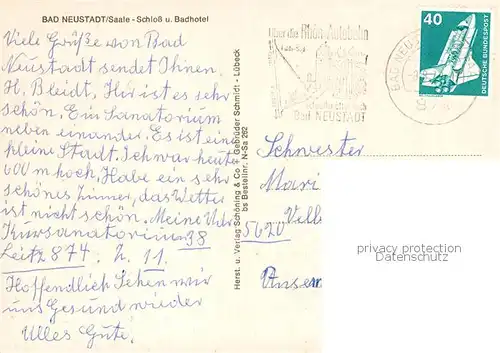 BAD NEUSTADT/Saale - Schloß u. Badhotel
Viele Grüße von Bad
Neustadt sendet Ihnen.
H. Bleidt, Hier ist es sehr
schön. Ein Sanatorium
neben einander. Es ist eine
kleine Stadt. Ich war heute
600 m hoch. Habe ein sehr
schönes Zimmer, das Wetter
ist nicht schön. Meine
Kursanatorium 38
Leitz 874. Z. 11.
Hoffendlich Sehen wir
uns Gesund wieder
Alles Gute!
Herst. u. Verlag Schöning & Co + Gebrüder Schmidt - Lübeck
bs Bestellnr. N-Sa 292
Über die Rhön-Autobahn
Bad NEUSTADT
BAD NEU
40
DEUTSCHE BUNDESPOST
Schwester
Mari
5620
privacy protection
DatenSchutz